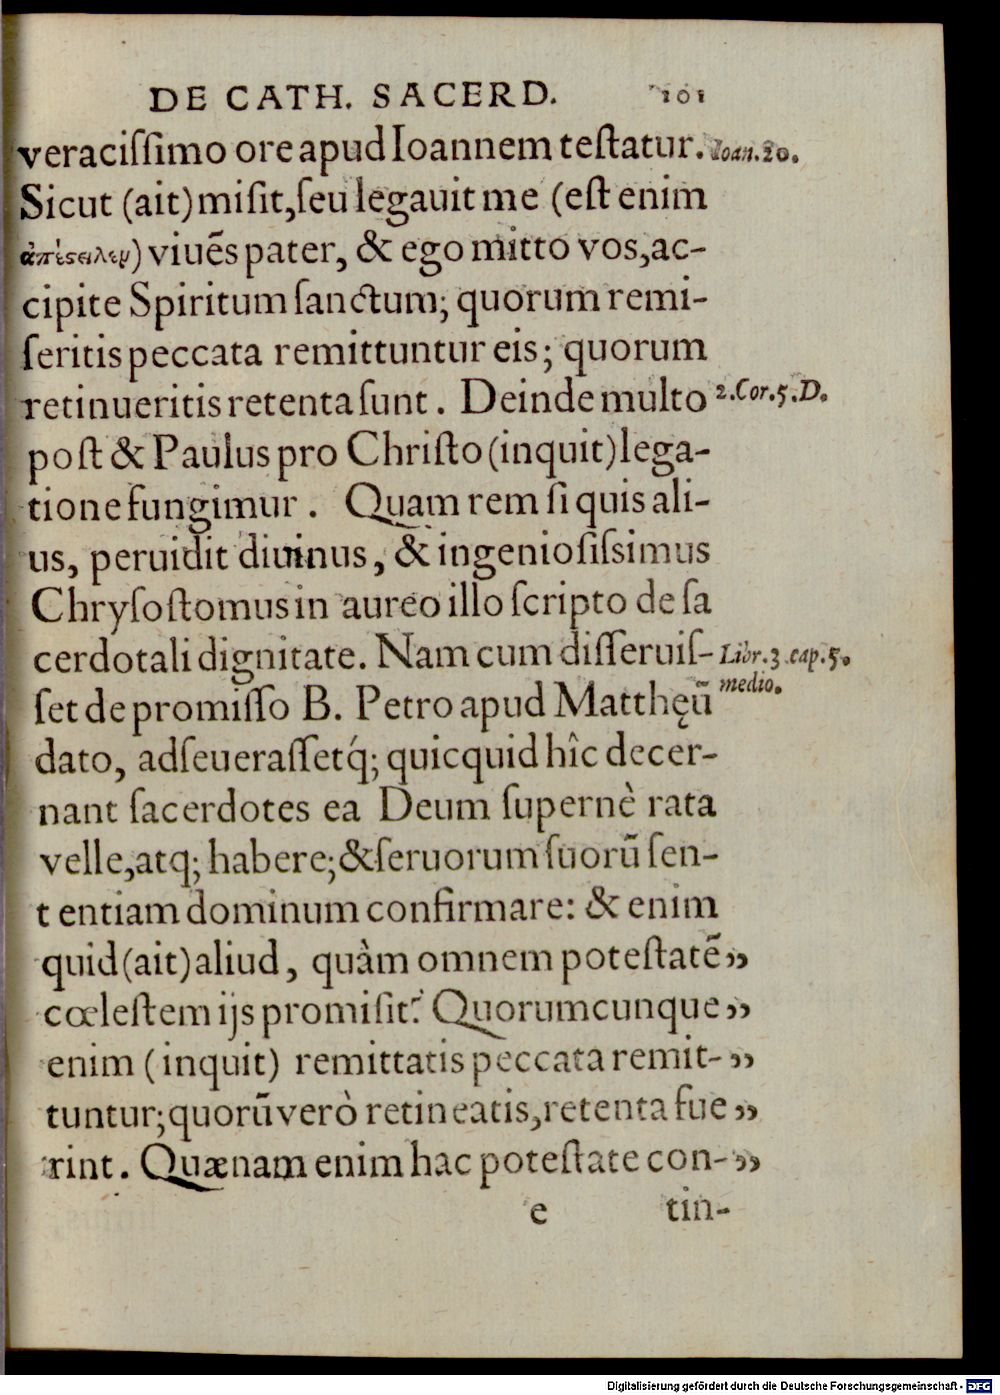 DE CATH. SACERD. 101
veracissimo ore apud Ioannem testatur. Ioan. 20.
Sicut (ait) misit, seu legauit me (est enim
ἀπέςειλεν) viuēs pater, & ego mitto vos, ac-
cipite Spiritum sanctum; quorum remi-
seritis peccata remittuntur eis; quorum
retinueritis retenta sunt. Deinde multo 2. Cor. 5. D.
post & Paulus pro Christo (inquit) lega-
tione fungimur. Quam rem si quis ali-
us, peruidit diuinus, & ingeniosissimus
Chrysostomus in aureo illo scripto de sa
cerdotali dignitate. Nam cum disseruis- Libr. 3. cap. 5.
set de promisso B. Petro apud Matthęū medio.
dato, adseuerassetq́; quicquid hîc decer-
nant sacerdotes ea Deum supernè rata
velle, atq; habere; & seruorum suorū sen-
tentiam dominum confirmare: & enim
quid (ait) aliud, quàm omnem potestatē „
cœlestem ijs promisit? Quorumcunque „
enim (inquit) remittatis peccata remit- „
tuntur; quorū verò retineatis, retenta fue „
rint. Quænam enim hac potestate con- „
e tin-
Digitalisierung gefördert durch die Deutsche Forschungsgemeinschaft - DFG